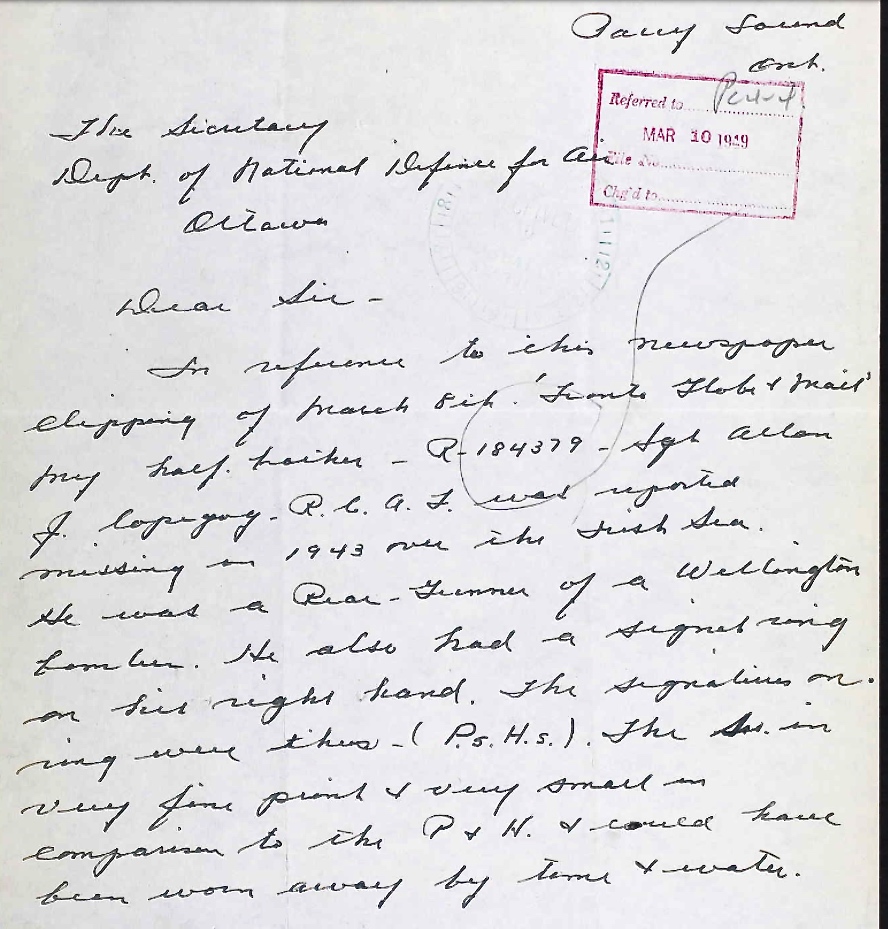 Parry Sound
Ont.
Referred to
MAR 10 1949
File No.
Chg'd to
The Secretary
Dept. of National Defence for Air
Ottawa
Dear Sir -
In reference to this newspaper
clipping of March 8th. 'Toronto Globe & Mail'
my half. brother - R-184379 - Sgt Allan
J. - R. C. A. F. was reported
missing in 1943 over the Irish Sea.
He was a Rear-Gunner of a Wellington
bomber. He also had a signet ring
on his right hand. The signatures on.
ring were thus - ( P.s. H.s. ). The in
very fine print & very small in
comparison to the P & H. & could have
been worn away by time & water.